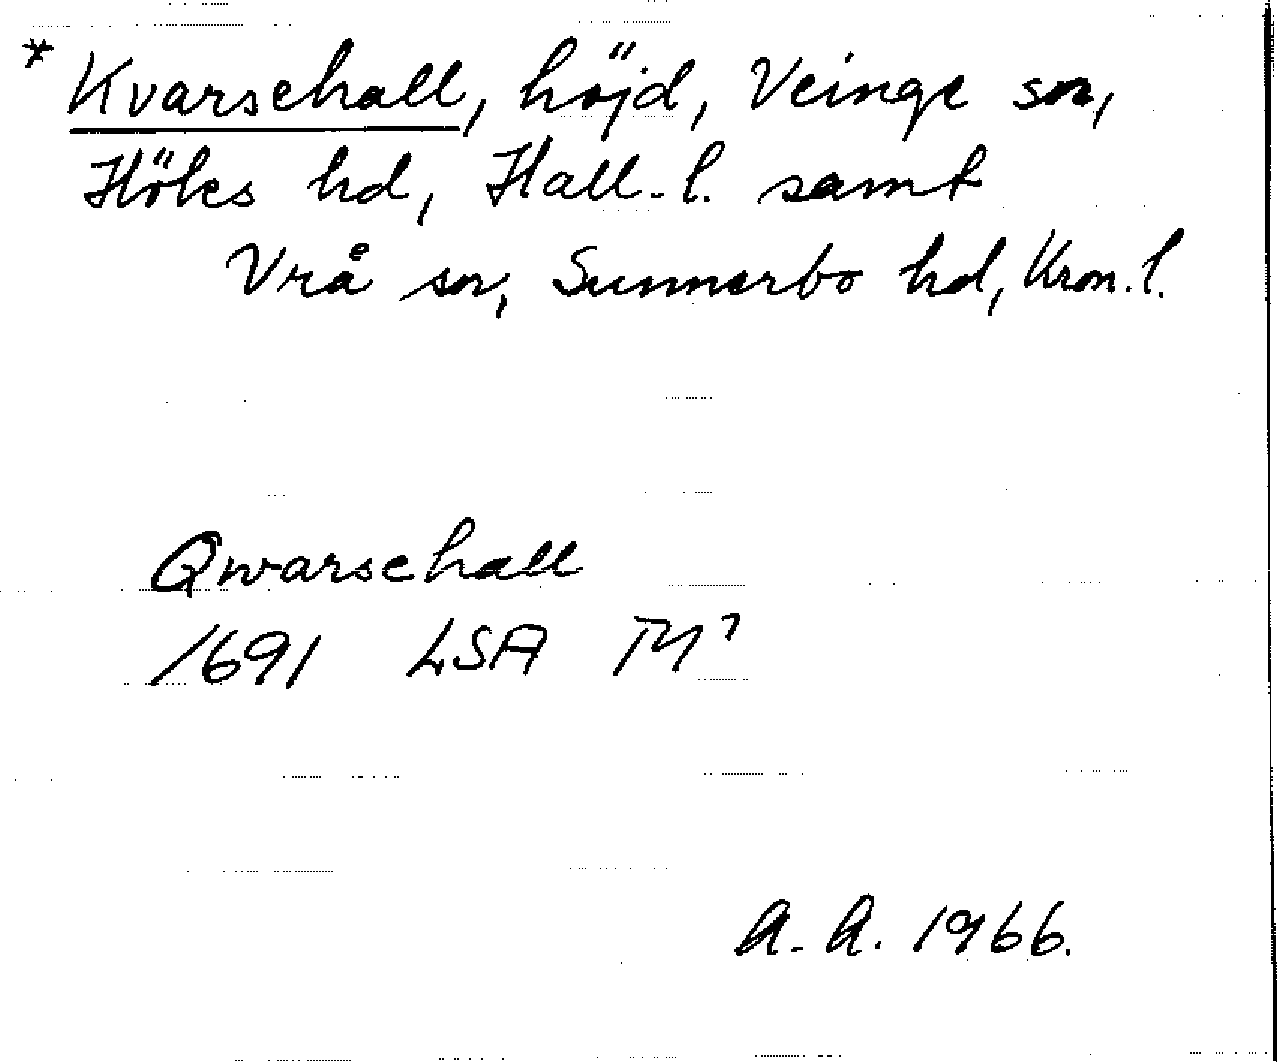 * Kvarsehall, höjd, Veinge sn,
Höks hd, Hall. l. samt
Vrå sn, Sunnerbo hd, Kron. l.
Qwarsehall
1691 LSA
A. A. 1966.